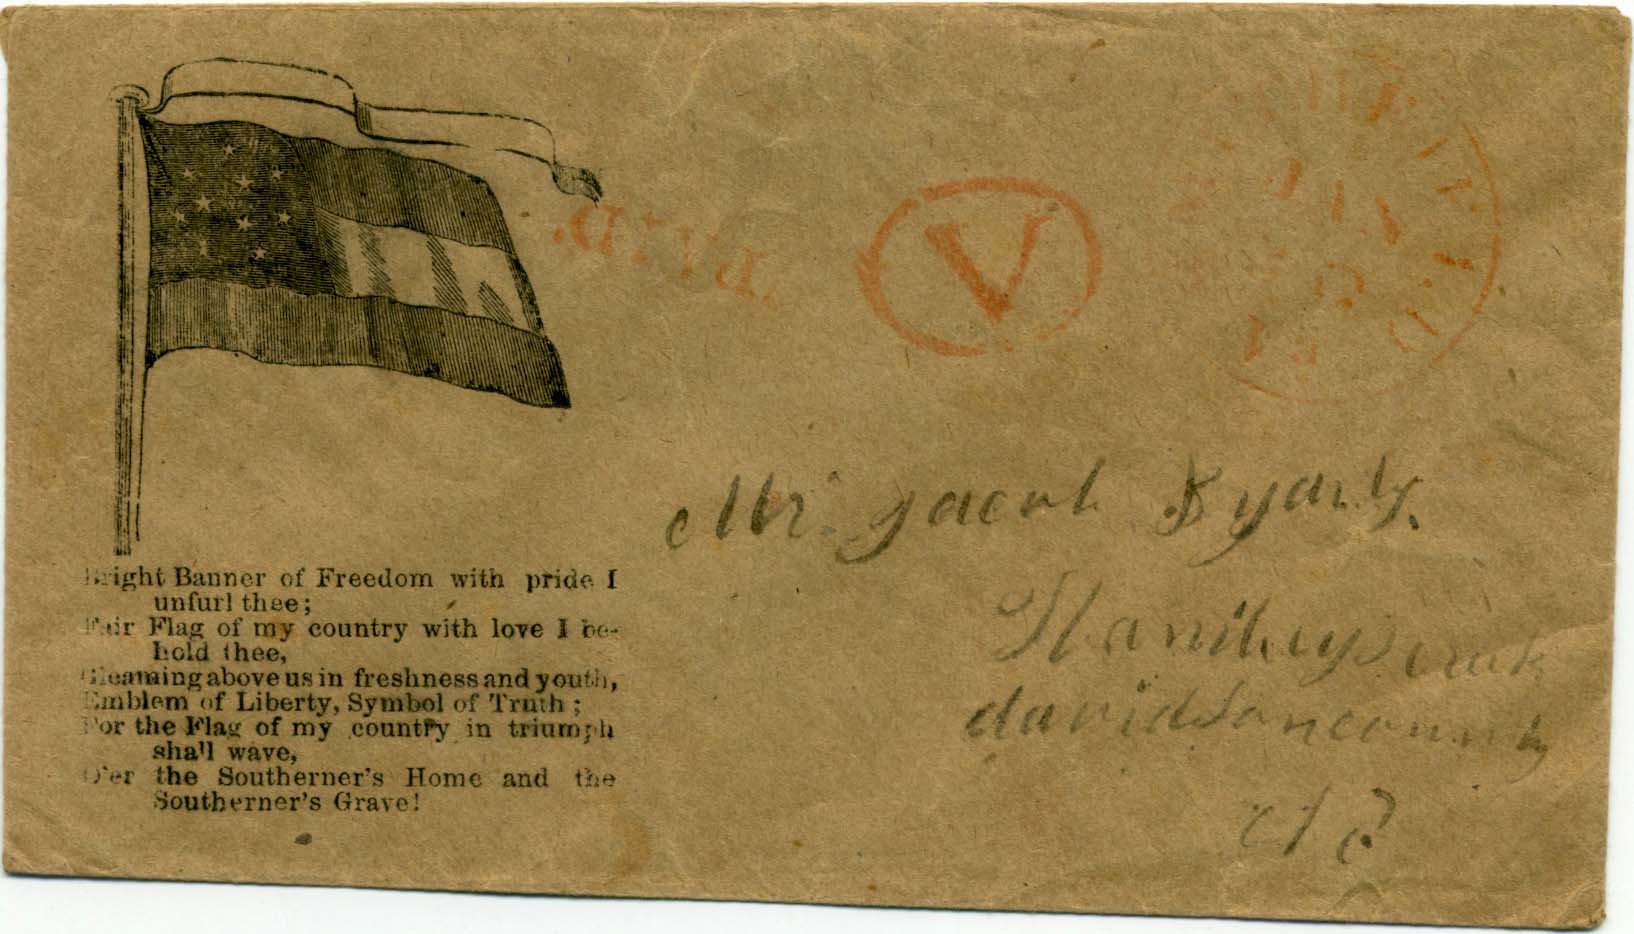 PAID.
V
Bright Banner of Freedom with pride I
unfurl thee;
Fair Flag of my country with love I be-
hold thee,
Gleaming above us in freshness and youth,
Emblem of Liberty, Symbol of Truth;
For the Flag of my country in triumph
shall wave,
O'er the Southerner's Home and the
Southerner's Grave!
Mr. Jacob
davidson county
N C